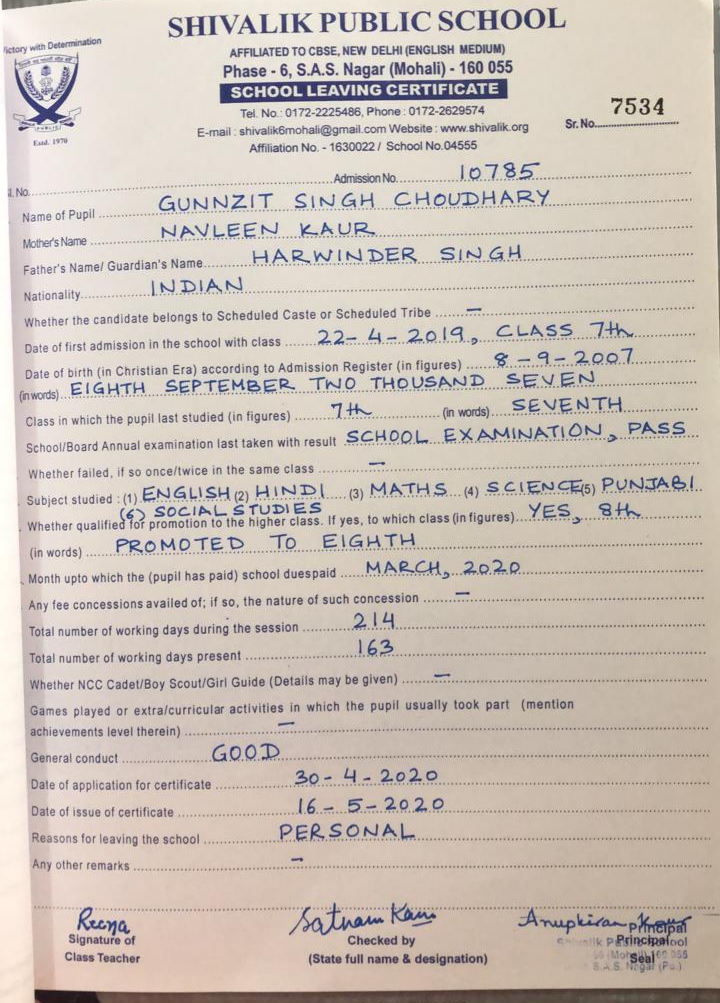 SHIVALIK PUBLIC SCHOOL
Victory with Determination
AFFILIATED TO CBSE, NEW DELHI (ENGLISH MEDIUM)
Phase - 6, S.A.S. Nagar (Mohali) - 160 055
SCHOOL LEAVING CERTIFICATE
Tel. No.: 0172-2225486, Phone : 0172-2629574
E-mail : shivalik6mohali@gmail.com Website : www.shivalik.org
Affiliation No. - 1630022 / School No.04555
Estd. 1970
Sr. No. 7534
l. No. Admission No. 10785
Name of Pupil GUNNZIT SINGH CHOUDHARY
Mother's Name NAVLEEN KAUR
Father's Name/ Guardian's Name HARWINDER SINGH
Nationality INDIAN
Whether the candidate belongs to Scheduled Caste or Scheduled Tribe —
Date of first admission in the school with class 22-4-2019, CLASS 7th
Date of birth (in Christian Era) according to Admission Register (in figures) 8-9-2007
(in words) EIGHTH SEPTEMBER TWO THOUSAND SEVEN
Class in which the pupil last studied (in figures) 7th (in words) SEVENTH
School/Board Annual examination last taken with result SCHOOL EXAMINATION, PASS
Whether failed, if so once/twice in the same class —
Subject studied : (1) ENGLISH (2) HINDI (3) MATHS (4) SCIENCE (5) PUNJABI
(6) SOCIAL STUDIES
Whether qualified for promotion to the higher class. If yes, to which class (in figures) YES, 8th
(in words) PROMOTED TO EIGHTH
Month upto which the (pupil has paid) school duespaid MARCH, 2020
Any fee concessions availed of; if so, the nature of such concession —
Total number of working days during the session 214
Total number of working days present 163
Whether NCC Cadet/Boy Scout/Girl Guide (Details may be given) —
Games played or extra/curricular activities in which the pupil usually took part (mention
achievements level therein) —
General conduct GOOD
Date of application for certificate 30-4-2020
Date of issue of certificate 16-5-2020
Reasons for leaving the school PERSONAL
Any other remarks —
Reena Satnam Kaur Anupkiran Kaur
Signature of Checked by Principal
Class Teacher (State full name & designation) Seal
Principal
Shivalik Public School
(Mohali) 160 055
S.A.S. Nagar (Pb.)